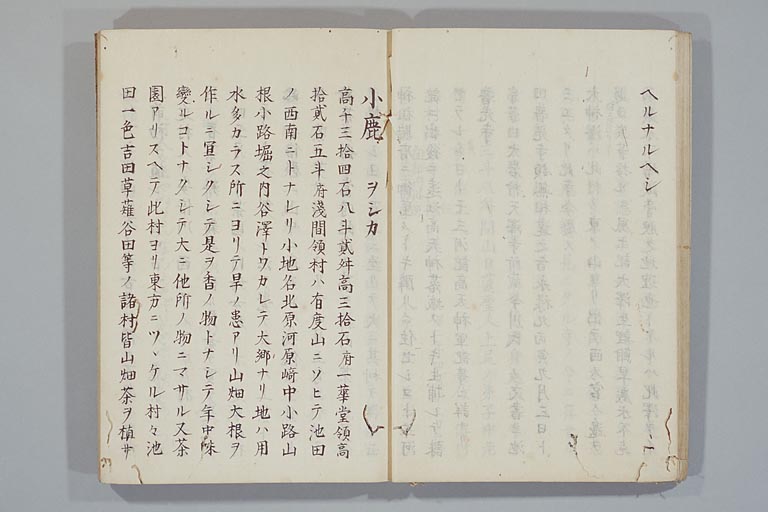 ヘルナルヘシ
小鹿 ヲシカ
高千三拾四石八斗貳舛高三拾石府一華堂領高
拾貳石五斗府淺間領村ハ有度山ニソヒテ池田
ノ西南ニトナレリ小地名北原河原﨑中小路山
根小路堀之内谷澤トワカレテ大郷ナリ地ハ用
水多カラス所ニヨリテ旱ノ患アリ山畑大根ヲ
作ルニ冝シクシテ是ヲ香ノ物トナシテ年中味
變ルコトナクシテ大ニ他所ノ物ニマサル又茶
園アリスヘテ此村ヨリ東方ニツヽケル村々池
田一色吉田草薙谷田等ノ諸村皆山畑茶ヲ植サ